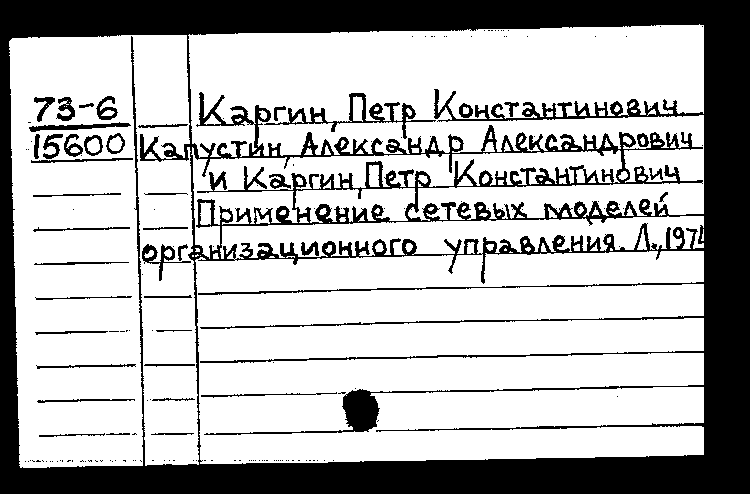 73-6 Каргин, Петр Константинович.
15600 Капустин, Александр Александрович
и Каргин, Петр Константинович
Применение сетевых моделей
организационного управления. Л.,